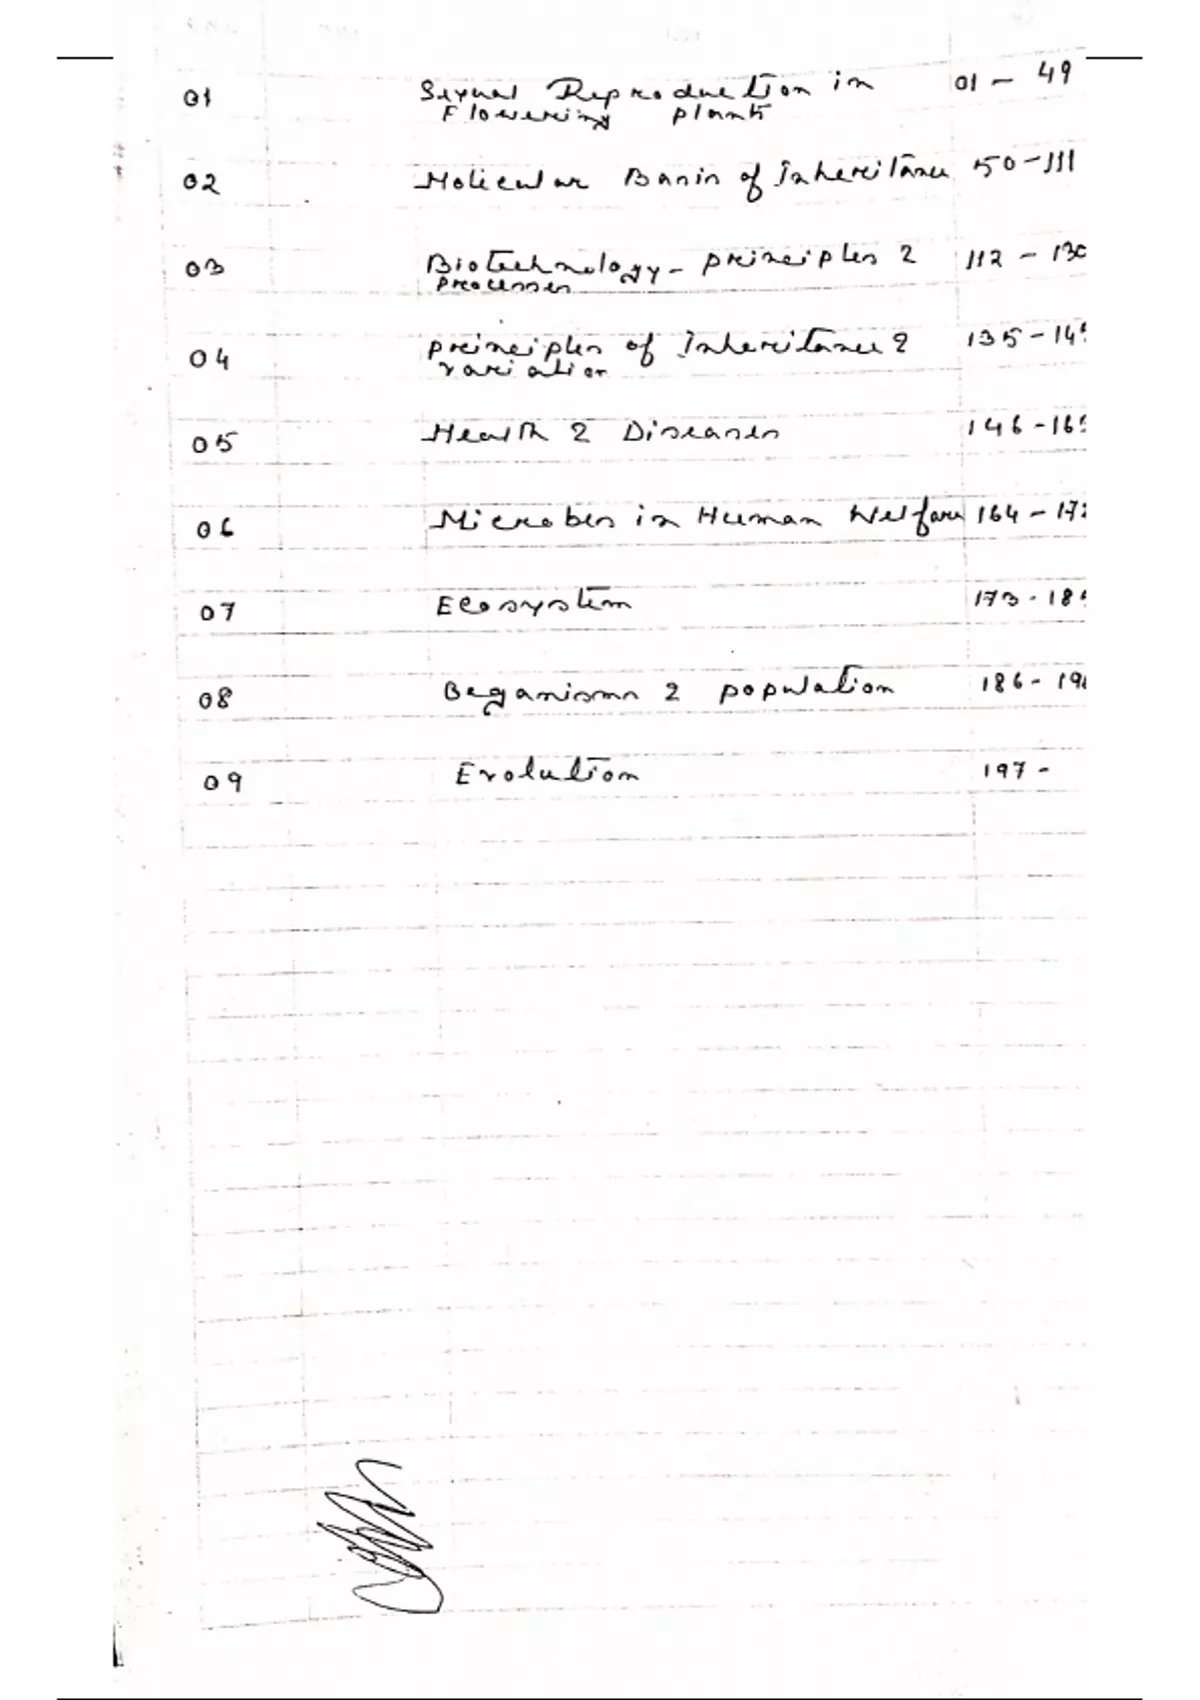 01 Sexual Reproduction in 01 - 49
Flowering plants
02 Molecular Basis of Inheritance 50-111
03 Biotechnology - principles & 112 - 130
processes
04 principles of Inheritance & 135-14
variation
05 Health & Diseases 146-16
06 Microbes in Human Welfare 164 - 17
07 Ecosystem 173 - 18
08 Organisms & population 186 - 19
09 Evolution 197 -